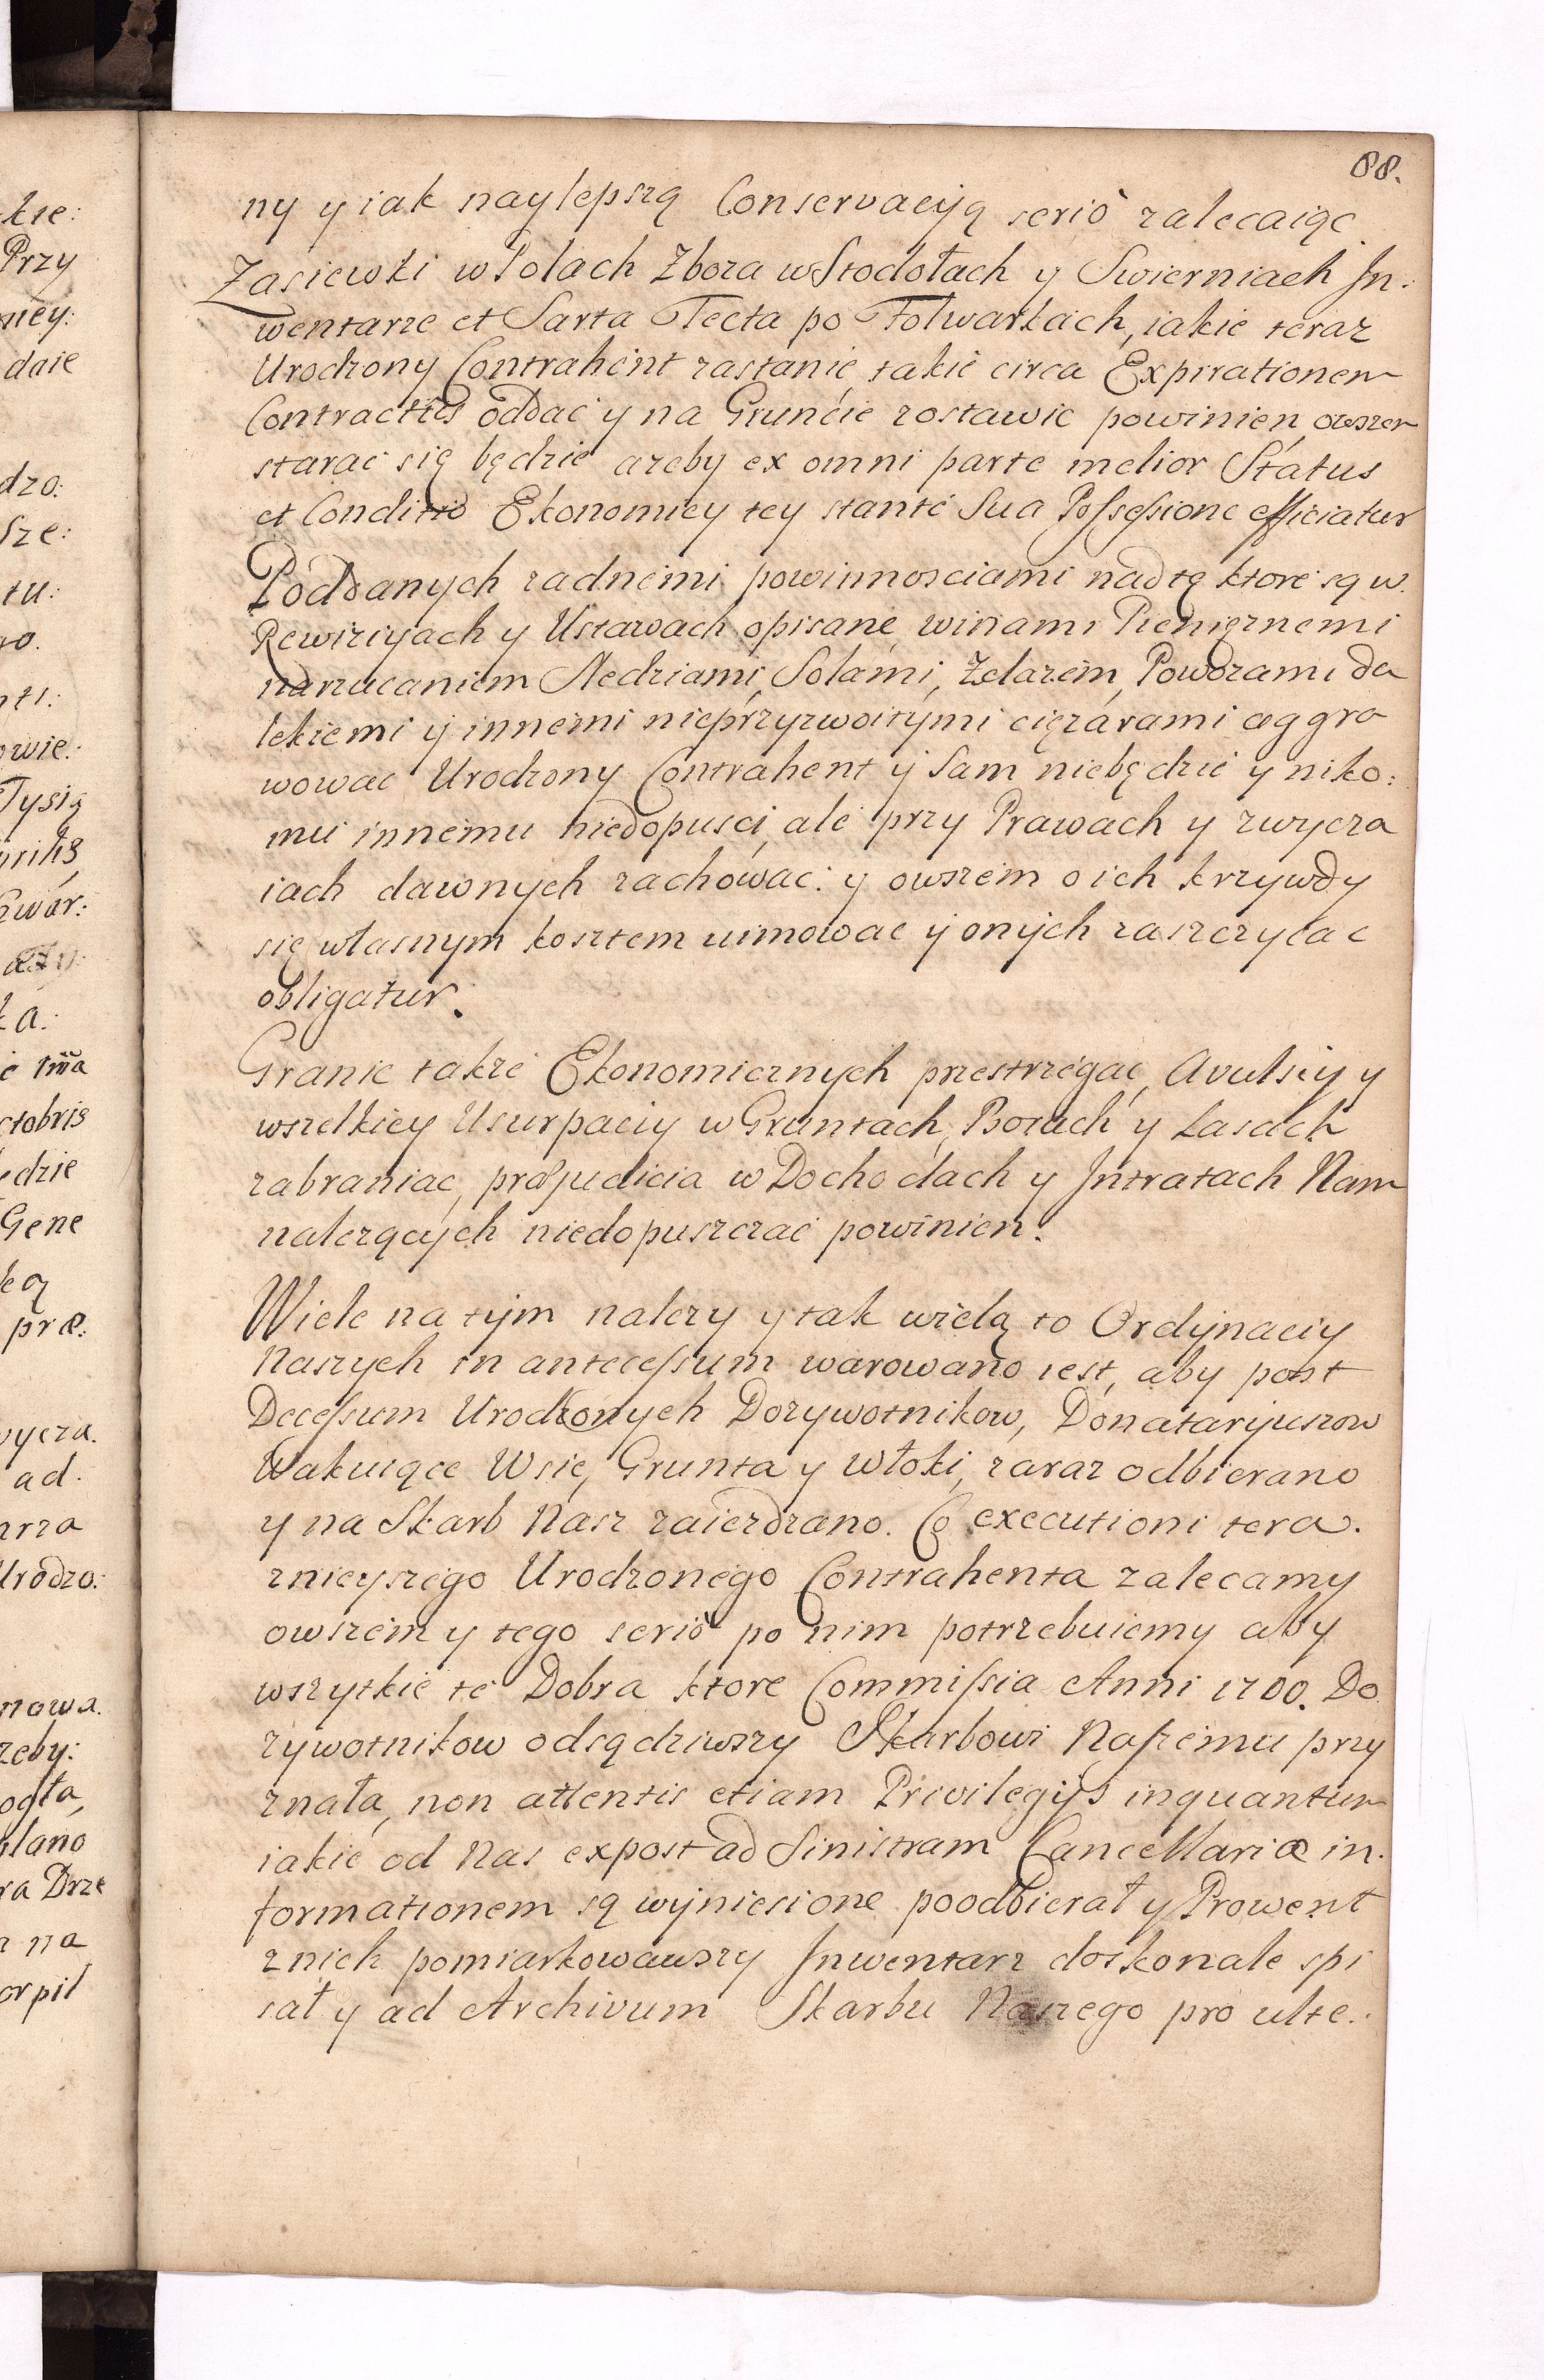 88.
ny y iak naylepszą Conservacyją serio zalecaiąc
Zasiewki w Polach Zboza w Stodołach y Swierniach In:
wentarze et Sarta Tecta po Folwarkach, iakie teraz
Urodzony Contrahent zastanie, takie circa Expirationem
Contractus oddać y na Gruncie zostawic powinien, owszem
starac się będzie azeby ex omni parte melior Status
et Conditio Ekonomiey tey stante Sua Possessione efficiatur
Poddanych zadnemi powinnosciami nad tę ktore są w.
Rewizyiach y Ustawach opisane winami Pieniężnemi
narzucaniem Sledziami, Solami, Zelazem, Powozami da
lekiemi y innemi nieprzyzwoitymi cięzarami aggra
wowac Urodzony Contrahent y sam niebędzie y niko:
mu innemu niedopusci, ale przy Prawach y zwycza
iach dawnych zachowac: y owszem o ich krzywdy
się własnym kosztem uimowac y onych zaszczycac
obligatur.
Granic także Ekonomicznych przestrzegac, Avulsiy y
wszelkiey Usurpaciy w Gruntach, Borach y Lasach
zabraniac, præjudicia w Dochodach y Intratach Nam
nalezących niedopuszczac powinien.
Wiele na tym nalezy y tak wielą to Ordynaciy
Naszych in antecessum warowano iest, aby post
Decessum Urodzonych Dozywotnikow, Donataryuszow
Wakuiące Wsie, Grunta y Włoki, zaraz odbierano
y na Skarb Nasz zaiezdzano. Co executioni tera.
znieyszego Urodzonego Contrahenta zalecamy
owszem y tego serio po nim potrzebuiemy aby
wszytkie te Dobra ktore Commissia Anni 1700. Do
zywotnikow odsądziwszy Skarbowi Naszemu przy
znała, non attentis etiam Privilegijs inquantum
iakie od Nas expost ad Sinistram Cancellariæ in.
formationem są wyniesione poodbierał y Prowent
z nich pomiarkowawszy Inwentarz doskonale spi
sał y ad Archivum Skarbu Naszego pro ulte.